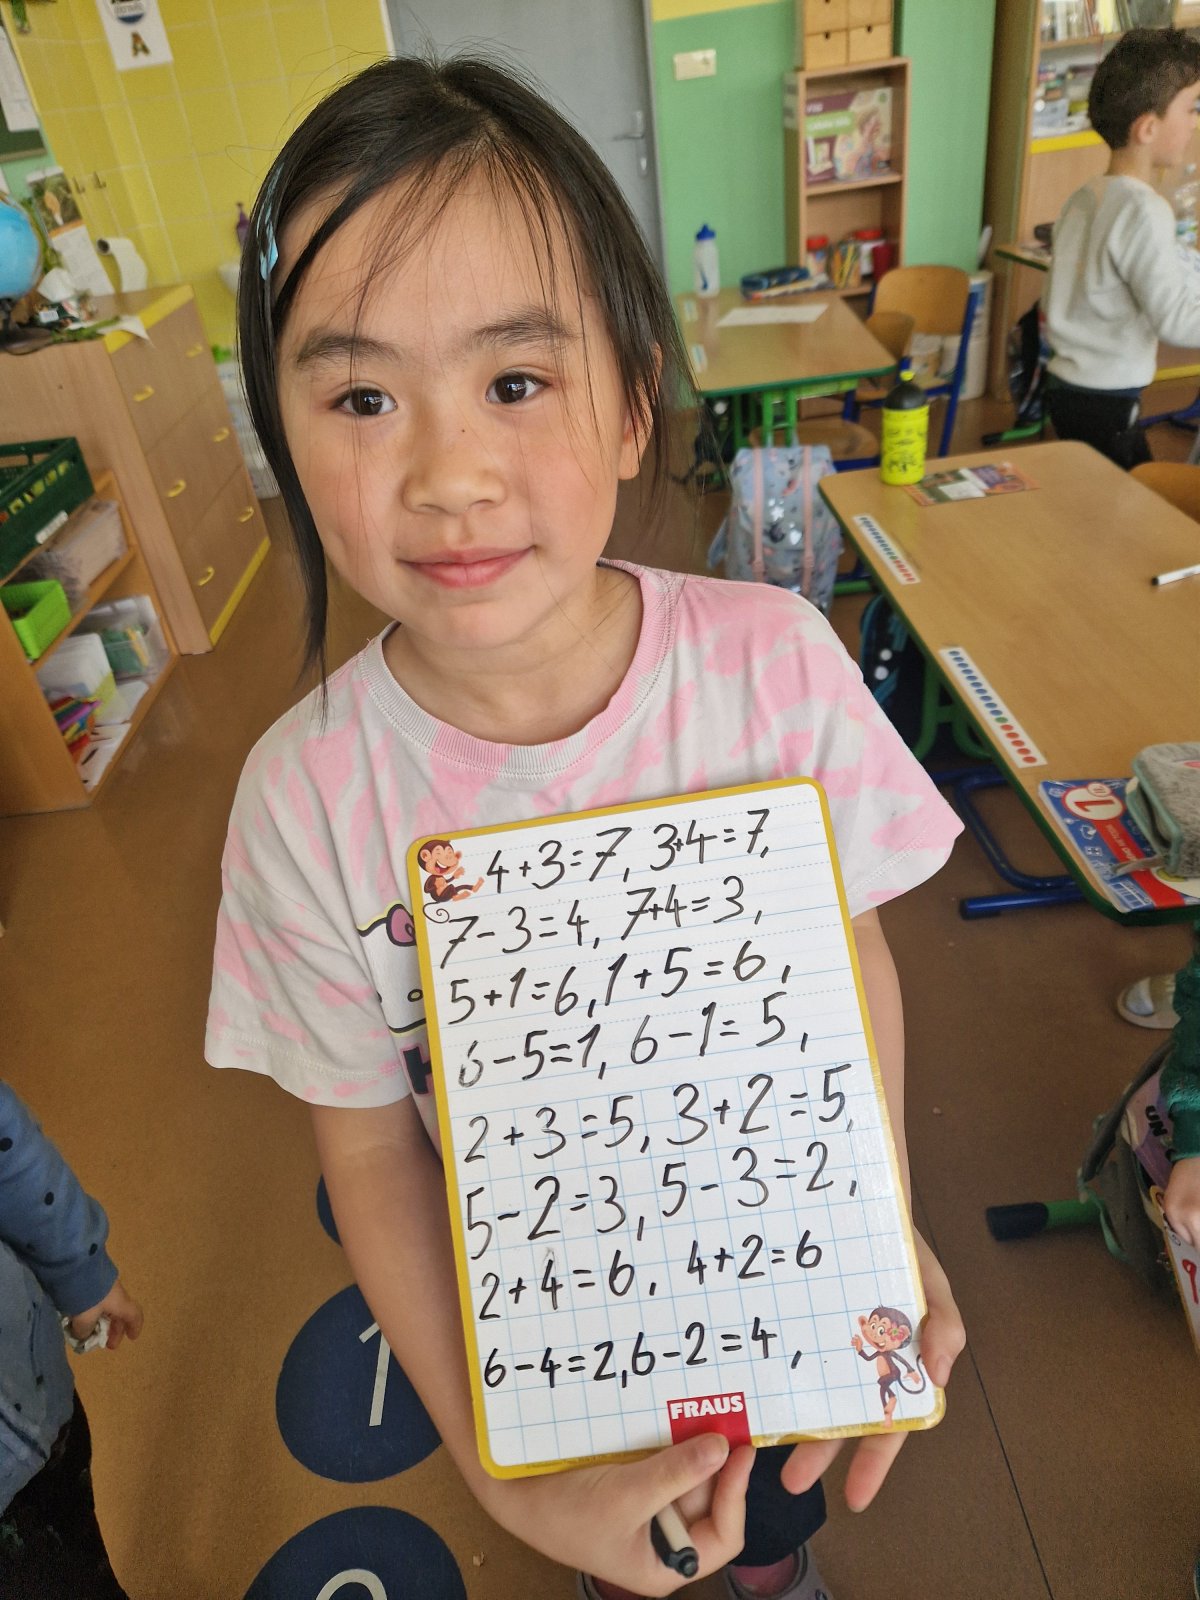 A
4+3=7, 3+4=7,
7-3=4, 7+4=3,
5+1=6, 1+5=6,
6-5=1, 6-1=5,
2+3=5, 3+2=5,
5-2=3, 5-3=2,
2+4=6, 4+2=6
6-4=2, 6-2=4,
FRAUS
1
1